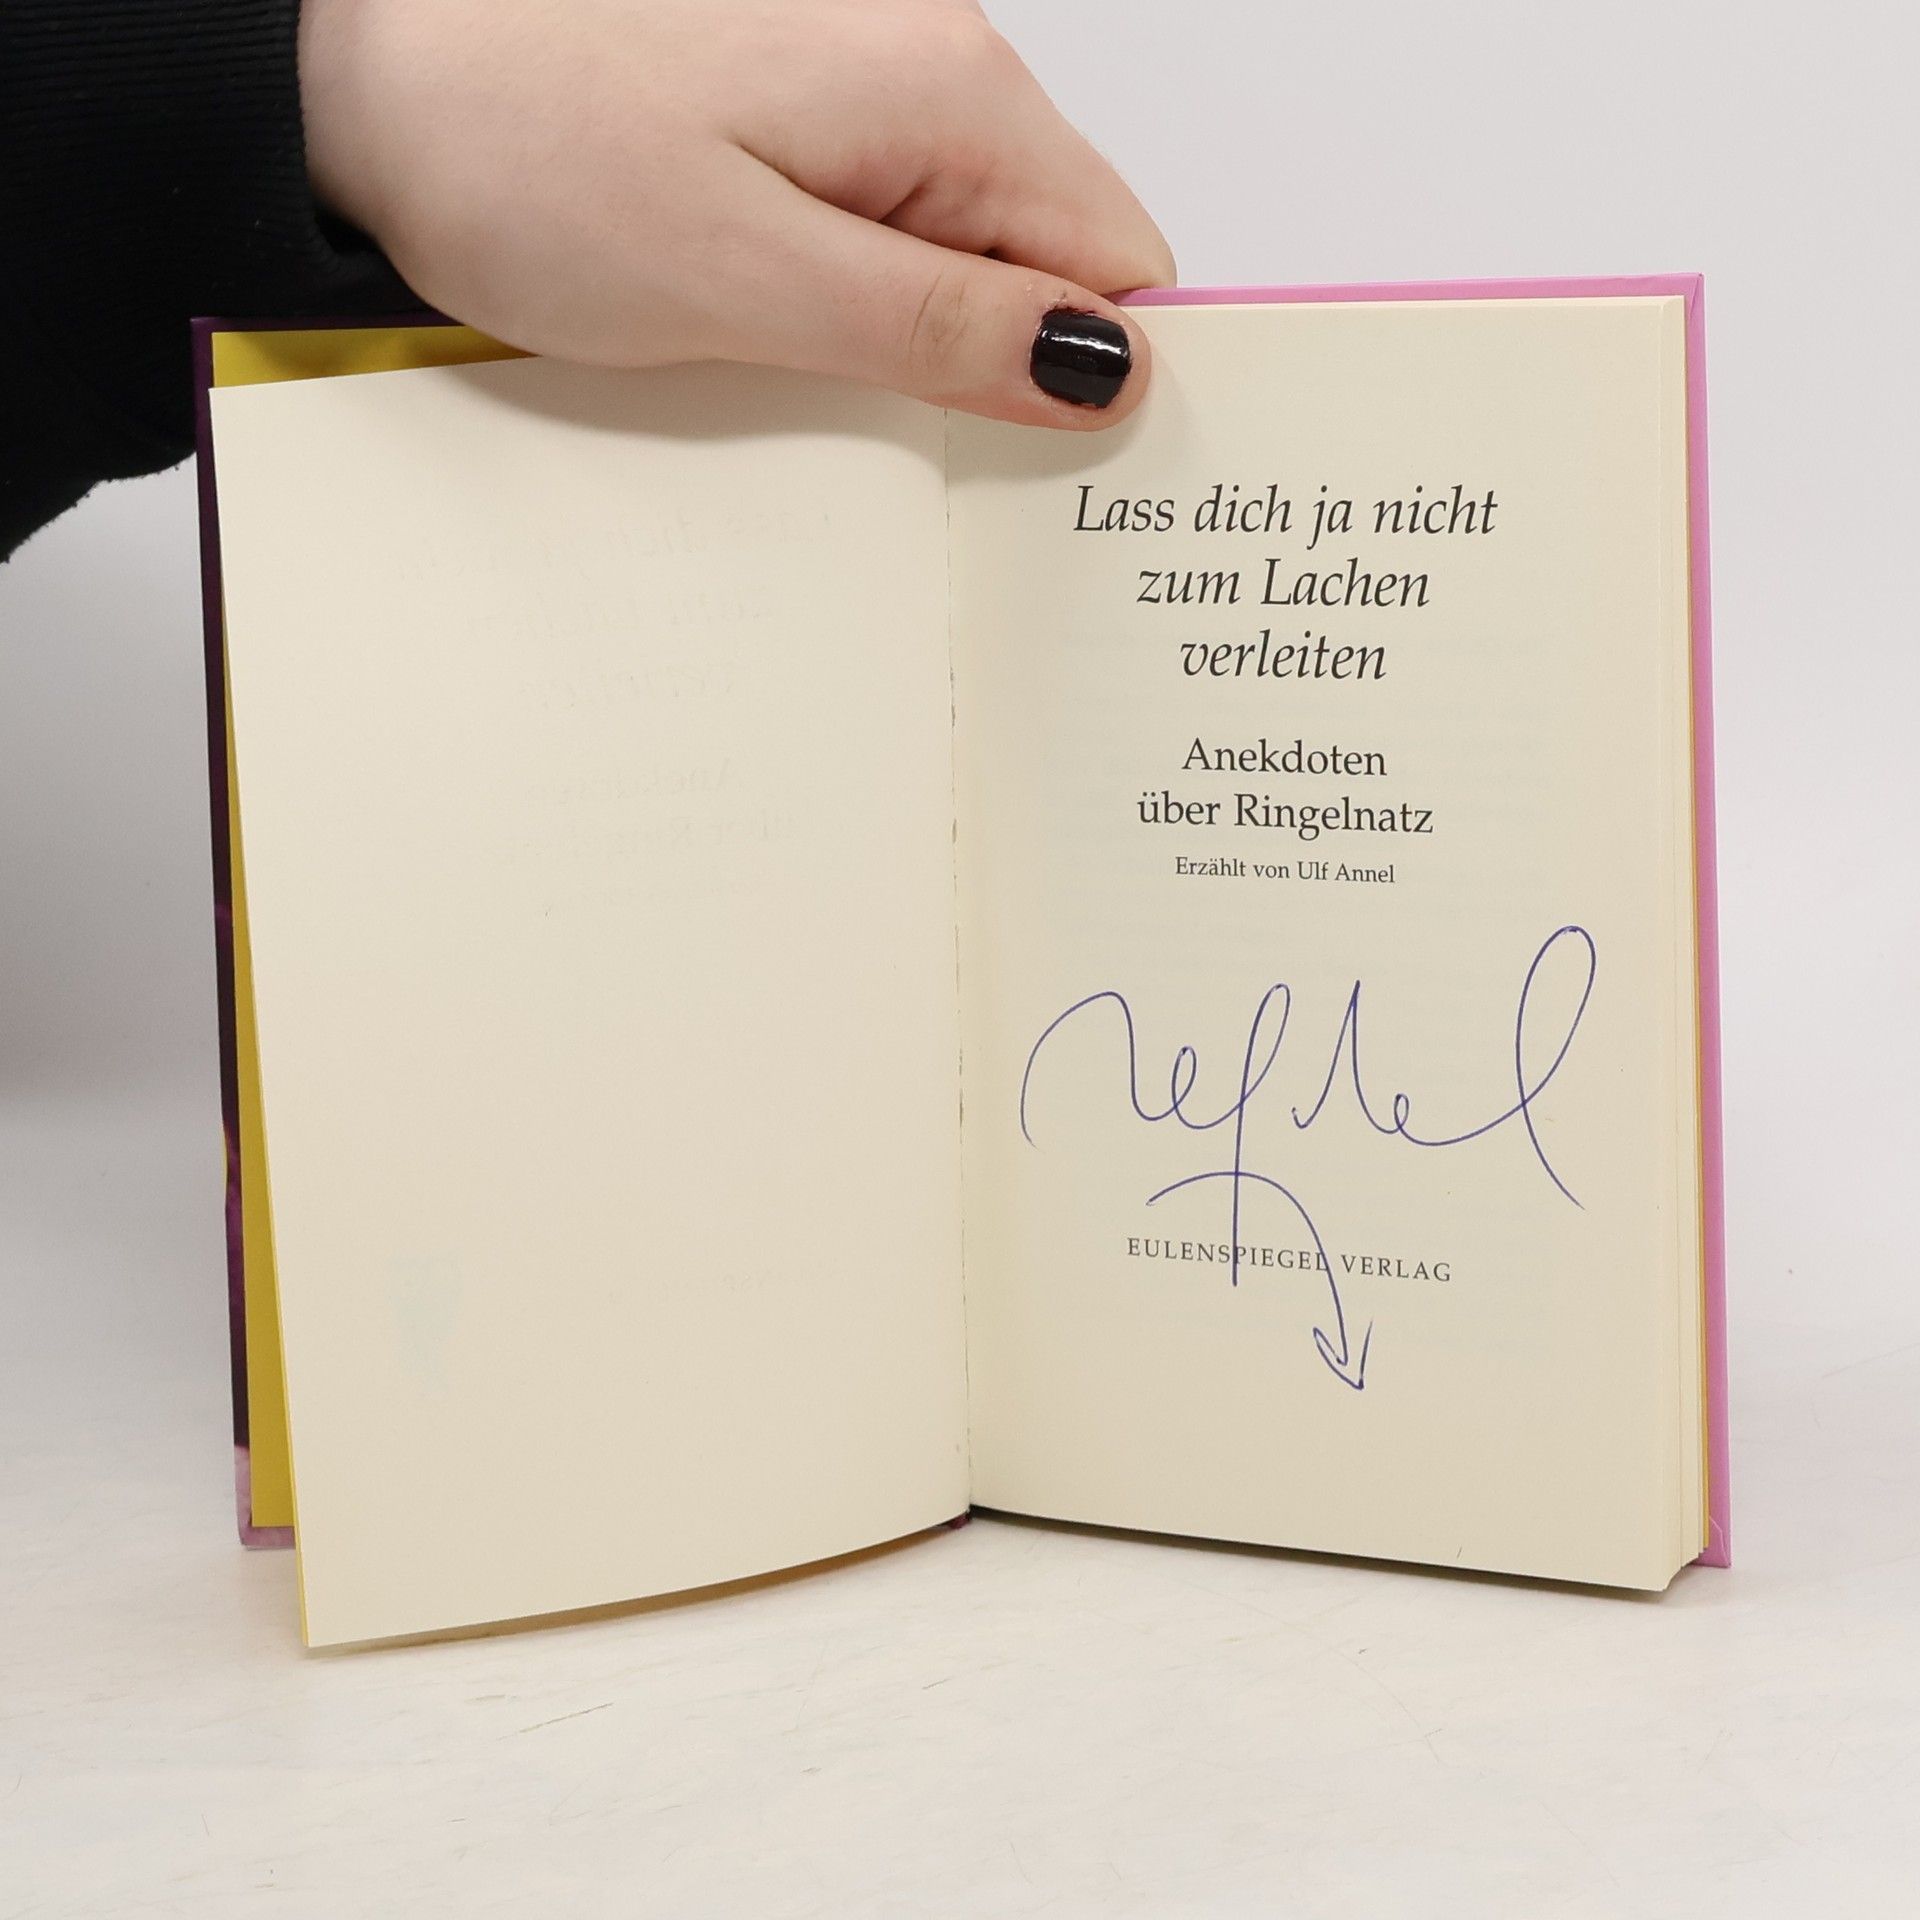 Lass dich ja nicht
zum Lachen
verleiten
Anekdoten
über Ringelnatz
Erzählt von Ulf Annel
EULENSPIEGEL VERLAG